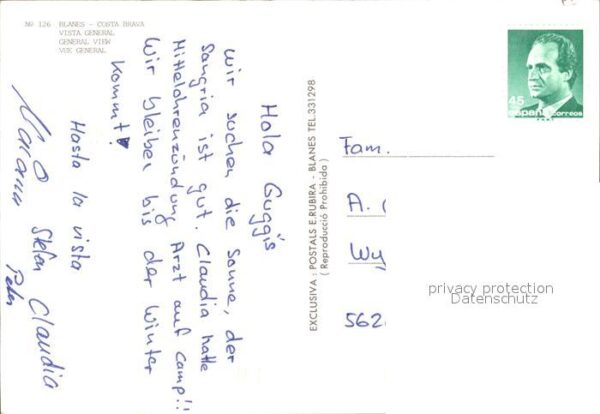 Nº 126 BLANES - COSTA BRAVA
VISTA GENERAL
GENERAL VIEW
VUE GENERAL
Hola Guggis
Wir suchen die Sonne, der
Sangria ist gut. Claudia hatte
Mittelohrenzündung Arzt auf Camp!!
Wir bleiben bis der Winter
kommt!
Hasta la vista
Stefan Claudia
Peter
EXCLUSIVA: POSTALS E.RUBIRA - BLANES TEL.331298
( Reproducció Prohibida )
45
españa correos
Fam.
A.
Wy
562
privacy protection
Datenschutz